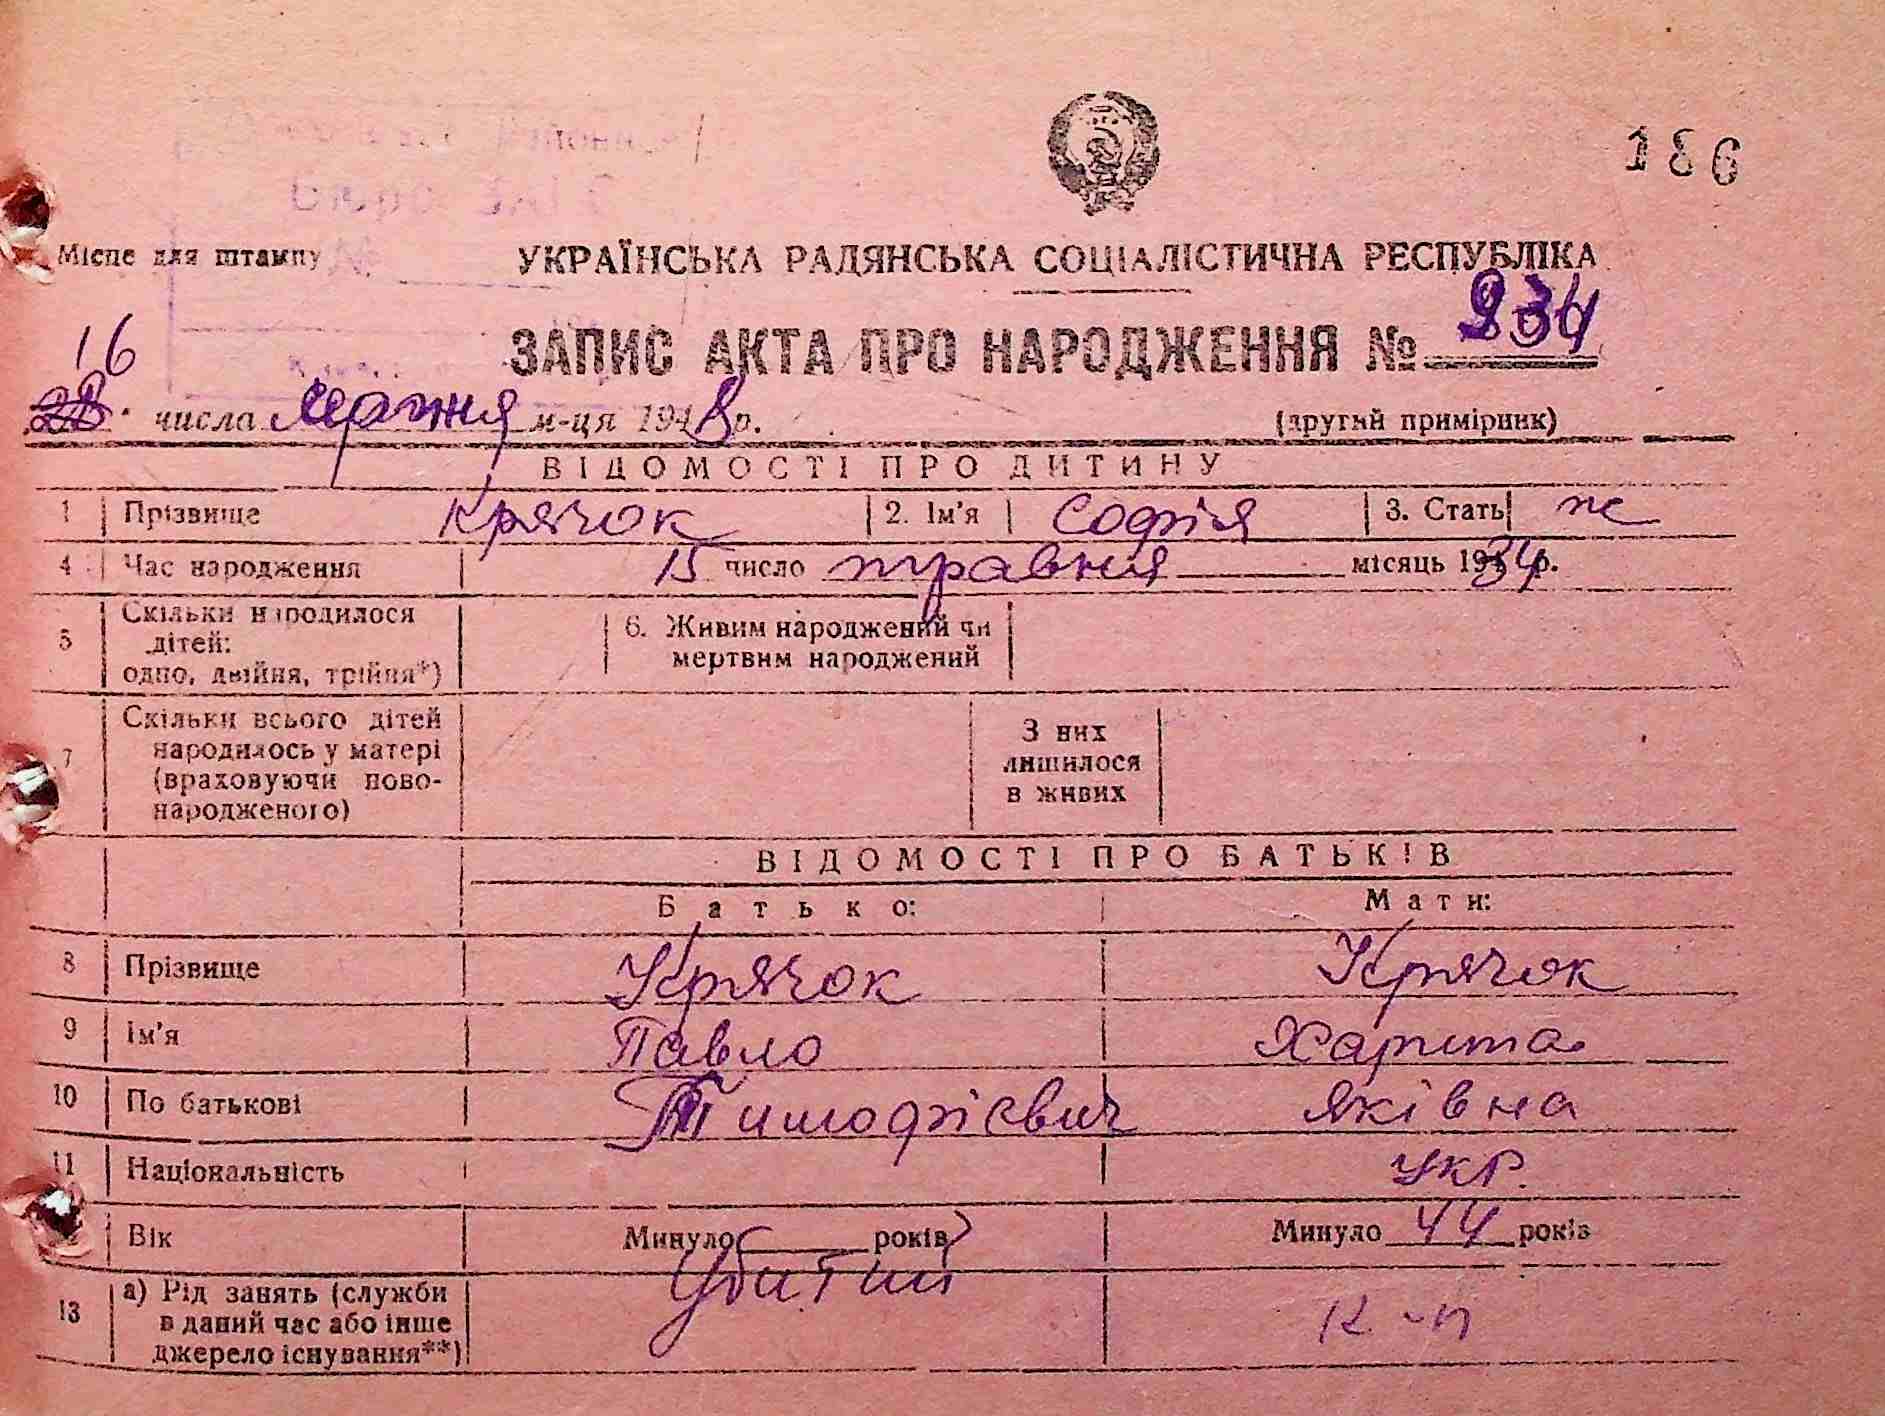 186
Місце для штампу
УКРАЇНСЬКА РАДЯНСЬКА СОЦІАЛІСТИЧНА РЕСПУБЛІКА
ЗАПИС АКТА ПРО НАРОДЖЕННЯ № 234
16
числа м-ця 1948 р.
(другий примірник)
ВІДОМОСТІ ПРО ДИТИНУ
1 Прізвище Крячок 2. Ім'я Софія 3. Стать ж
4 Час народження 15 число травня місяць 1934 р.
5 Скільки народилося дітей: одно, двійня, трійня*)
6. Живим народжений чи мертвим народжений
7 Скільки всього дітей народилось у матері (враховуючи новонародженого)
З них лишилося в живих
ВІДОМОСТІ ПРО БАТЬКІВ
Батько: Мати:
8 Прізвище Крячок Крячок
9 Ім'я Павло Харита
10 По батькові Тимофієвич Яківна
11 Національність укр.
Вік Минуло років Минуло 44 років
Убитий
13 а) Рід занять (служби в даний час або інше джерело існування**) к-п